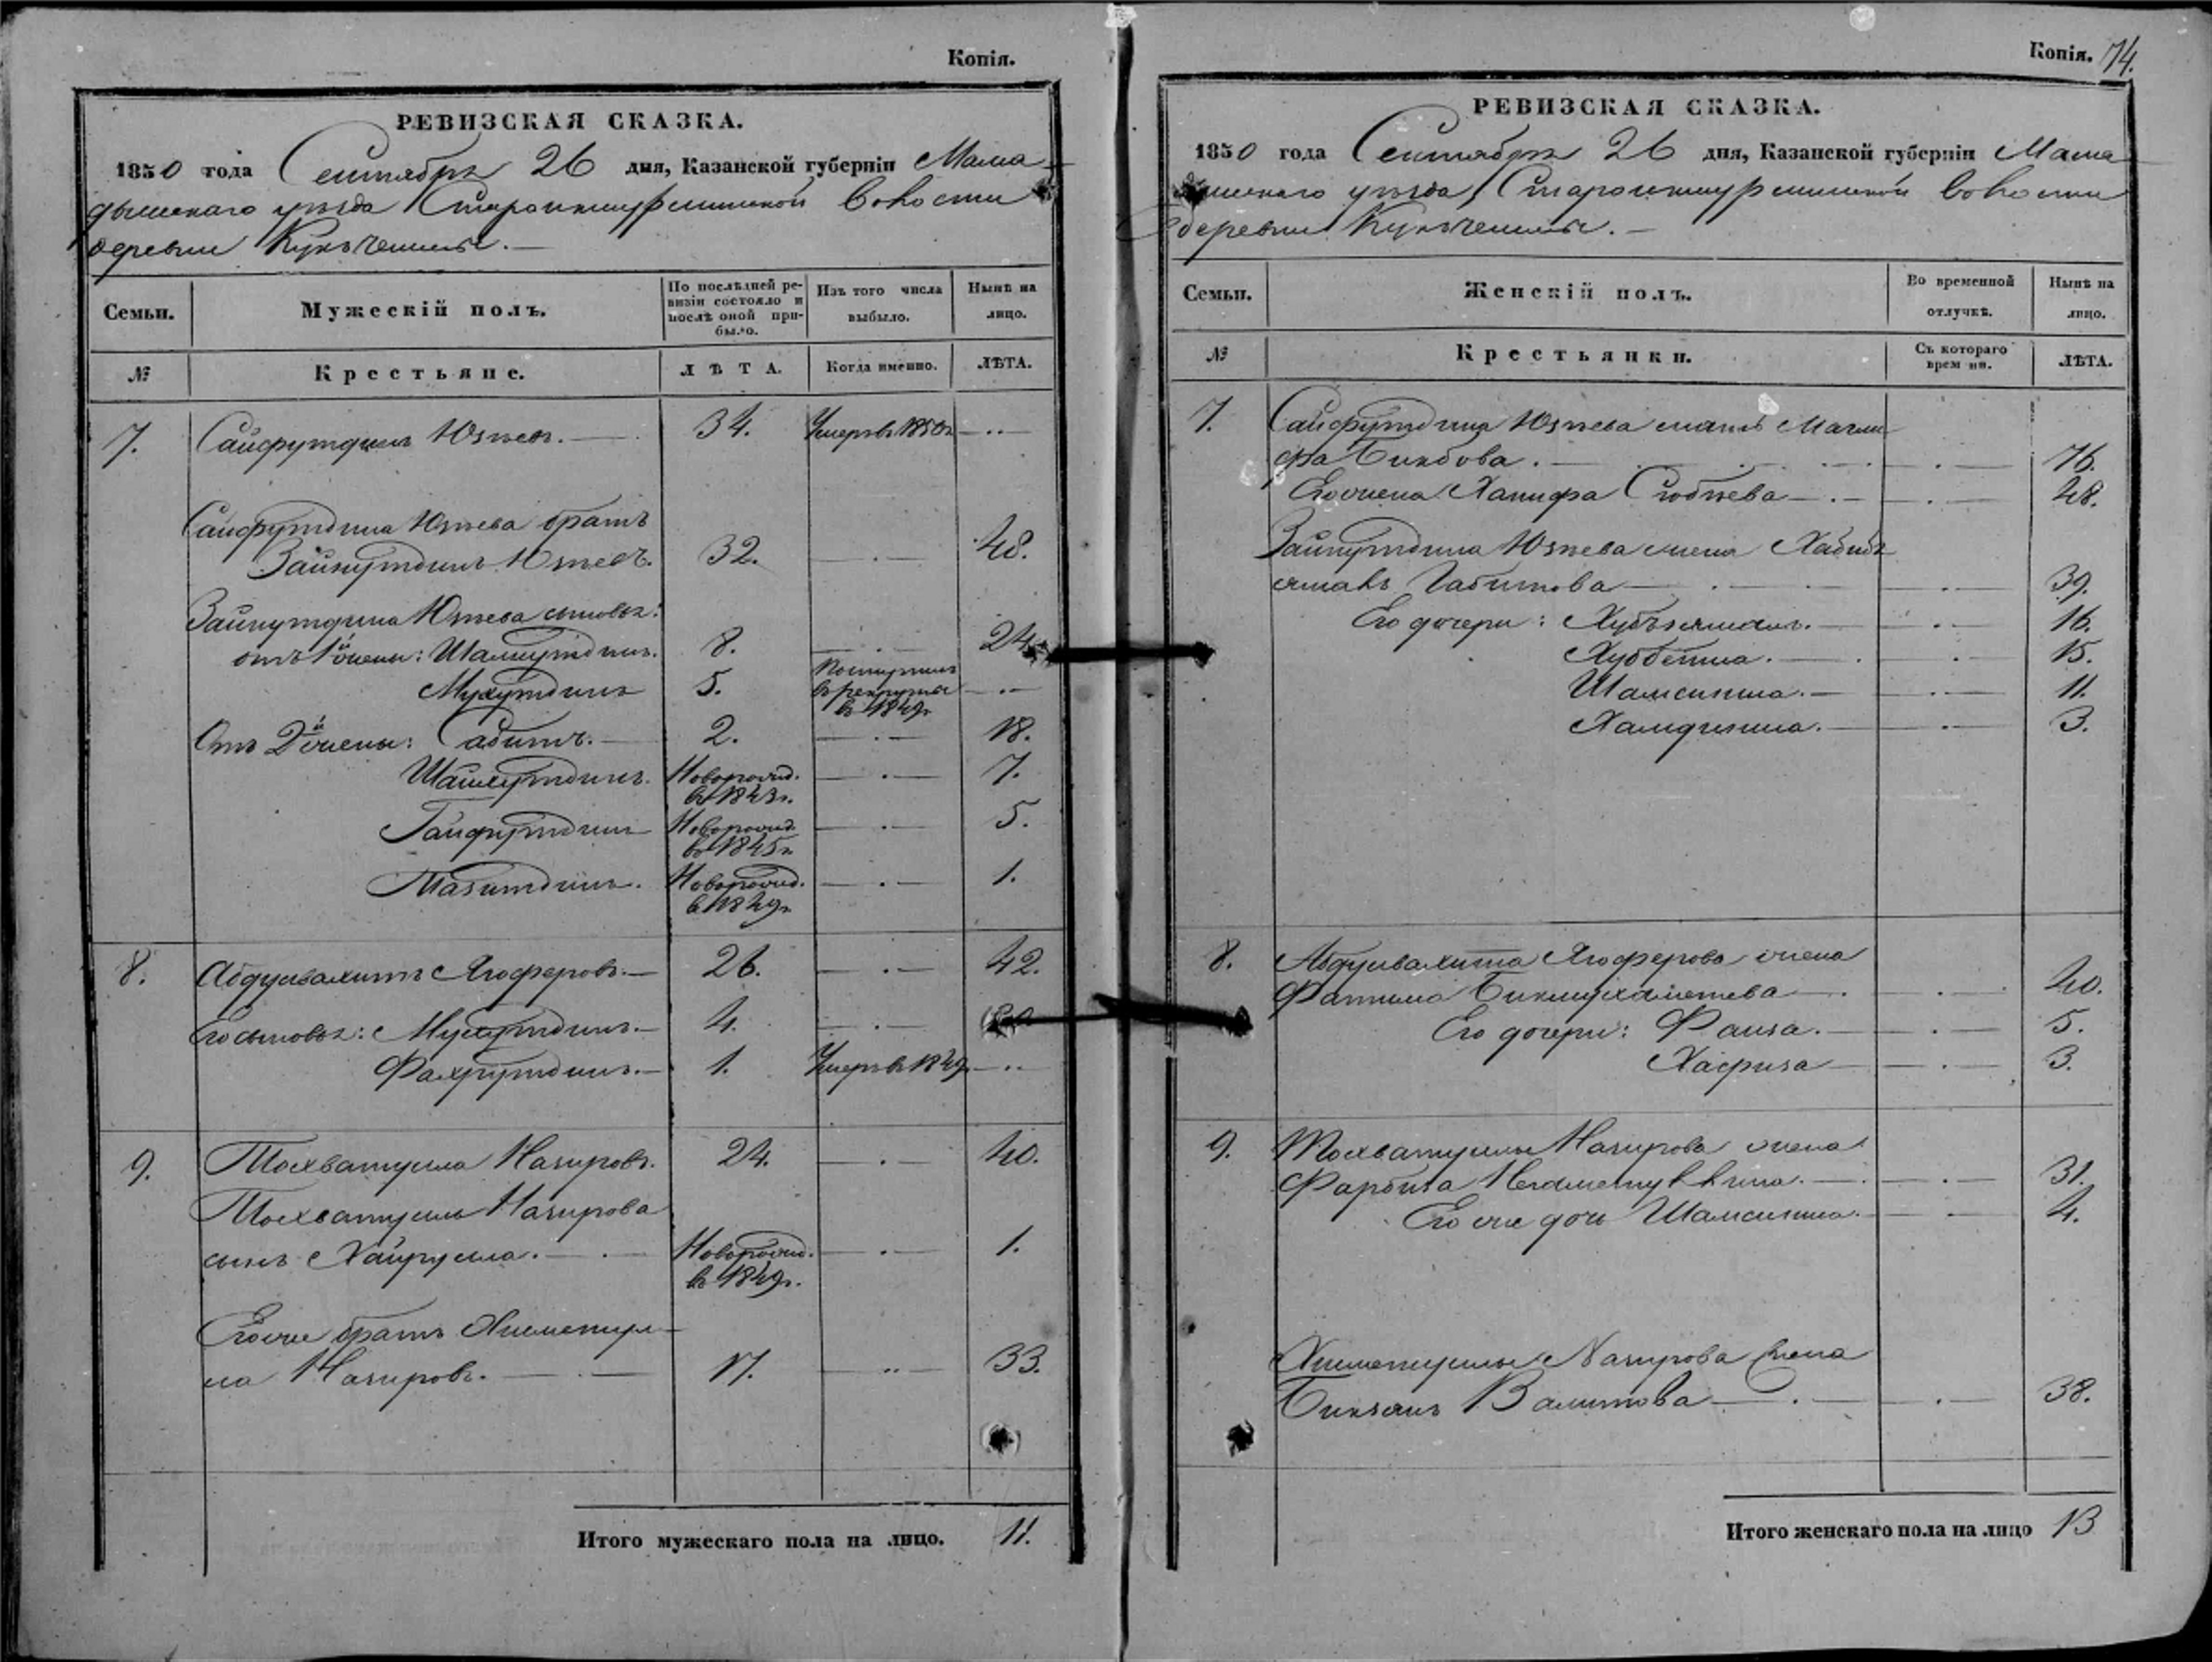 Копія.
РЕВИЗСКАЯ СКАЗКА.
1850 года Сентября 26 дня, Казанской губерніи Мама-
дышскаго уѣзда Волости
деревни
Семьи.
Мужескій полъ.
По послѣдней ре-
визіи состояло и
послѣ оной при-
было.
Изъ того числа
выбыло.
Нынѣ на
лицо.
№
Крестьяне.
ЛѢТА.
Когда именно.
ЛѢТА.
7. Сайфутдинъ Юзѣевъ. 34. Умеръ въ 1850г
Сайфутдина Юзѣева братъ
Зайнутдинъ Юзѣевъ. 32. 48.
Зайнутдина Юзѣева сыновья:
отъ 1й жены: 8. 24.
Мухутдинъ 5. Поступилъ
в рекруты
въ 1849г
Отъ 2й жены: Сабитъ. 2. 18.
Новорожд. 7.
въ 1843г.
Гайфутдинъ Новорожд. 5.
въ 1845г
Новорожд. 1.
въ 1849г
8. Абдулвахитъ Ягоферовъ. 26. 42.
Его сыновья: Мухутдинъ. 4.
Фахрутдинъ. 1. Умеръ въ 1849
9. Тохватулла Назировъ. 24. 40.
Тохватуллы Назирова
сынъ Хайрулла. Новорожд. 1.
въ 1849г.
Его же братъ Хисметул-
ла Назировъ. 17. 33.
Итого мужескаго пола на лицо. 11.
Копія. 74.
РЕВИЗСКАЯ СКАЗКА.
1850 года Сентября 26 дня, Казанской губерніи Мама-
дышскаго уѣзда Волости
деревни
Семьи.
Женскій полъ.
Во временной
отлучкѣ.
Нынѣ на
лицо.
№
Крестьянки.
Съ котораго
времени.
ЛѢТА.
7. Сайфутдина Юзѣева мать Магли-
фа Бикбова. 76.
Его жена Ханифа 48.
Зайнутдина Юзѣева жена Хабибъ-
ямалъ Габитова 39.
Его дочери: Хубъямалъ. 16.
Хуббениса. 15.
Шамсиниса. 11.
Хамдиниса. 3.
8. Абдулвахита Ягоферова жена
Фатима Бикмухаметева 40.
Его дочери: Фаиза. 5.
Хафиза 3.
9. Тохватуллы Назирова жена
Фарбиза 31.
Его же дочь Шамсиниса. 4.
Хисметуллы Назирова жена
Валитова 38.
Итого женскаго пола на лицо 13